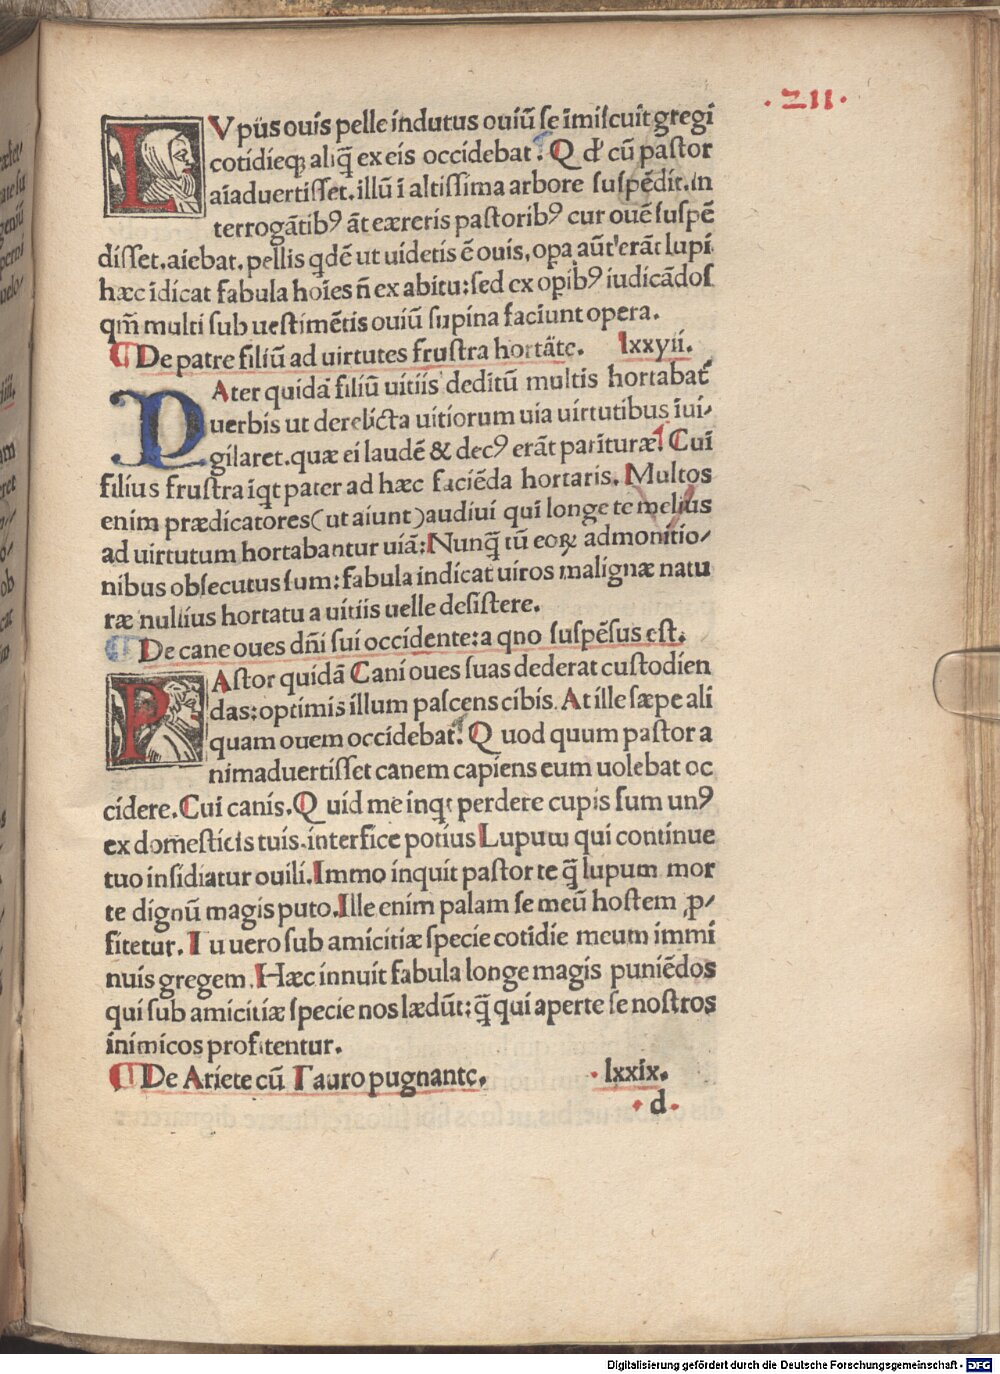 .211.
LVpus ouis pelle indutus ouiũ se ĩmiscuit gregi
cotidieqꝫ aliq̃ ex eis occidebat. Q d' cũ pastor
aĩaduertisset. illũ ĩ altissima arbore suspẽdit. in
terrogãtibꝰ ãt cæteris pastoribꝰ cur ouẽ suspẽ
disset. aiebat. pellis qdẽ ut uidetis ẽ ouis, opa aũt erãt lupi
hæc ĩdicat fabula hoĩes ñ ex abitu: sed ex opibꝰ iudicãdos
qm̃ multi sub uestimẽtis ouiũ lupina faciunt opera.
¶ De patre filiũ ad uirtutes frustra hortãte. lxxyii.
PAter quidã filiũ uitiis deditũ multis hortabat̃
uerbis ut derelicta uitiorum uia uirtutibus ĩui-
gilaret. quæ ei laudẽ & decꝰ erãt parituræ. Cui
filius frustra iqt pater ad hæc faciẽda hortaris. Multos
enim prædicatores (ut aiunt) audiui qui longe te melius
ad uirtutum hortabantur uiã: Nunq̃ tñ eoꝝ admonitio-
nibus obsecutus sum: fabula indicat uiros malignæ natu
ræ nullius hortatu a uitiis uelle desistere.
¶ De cane oues dñi sui occidente: a qno suspẽsus est.
PAstor quidã Cani oues suas dederat custodien
das: optimis illum pascens cibis. At ille sæpe ali
quam ouem occidebat. Q uod quum pastor a
nimaduertisset canem capiens eum uolebat oc
cidere. Cui canis. Q uid me inqt perdere cupis sum unꝰ
ex domesticis tuis. interfice potius Lupum qui continue
tuo insidiatur ouili. Immo inquit pastor te q̃ lupum mor
te dignũ magis puto. Ille enim palam se meũ hostem ꝓ-
fitetur. T u uero sub amicitiæ specie cotidie meum immi
nuis gregem. Hæc innuit fabula longe magis puniẽdos
qui sub amicitiæ specie nos lædũt: q̃ qui aperte se nostros
inimicos profitentur.
¶ De Ariete cũ Tauro pugnante. .lxxix.
d.
Digitalisierung gefördert durch die Deutsche Forschungsgemeinschaft - DFG